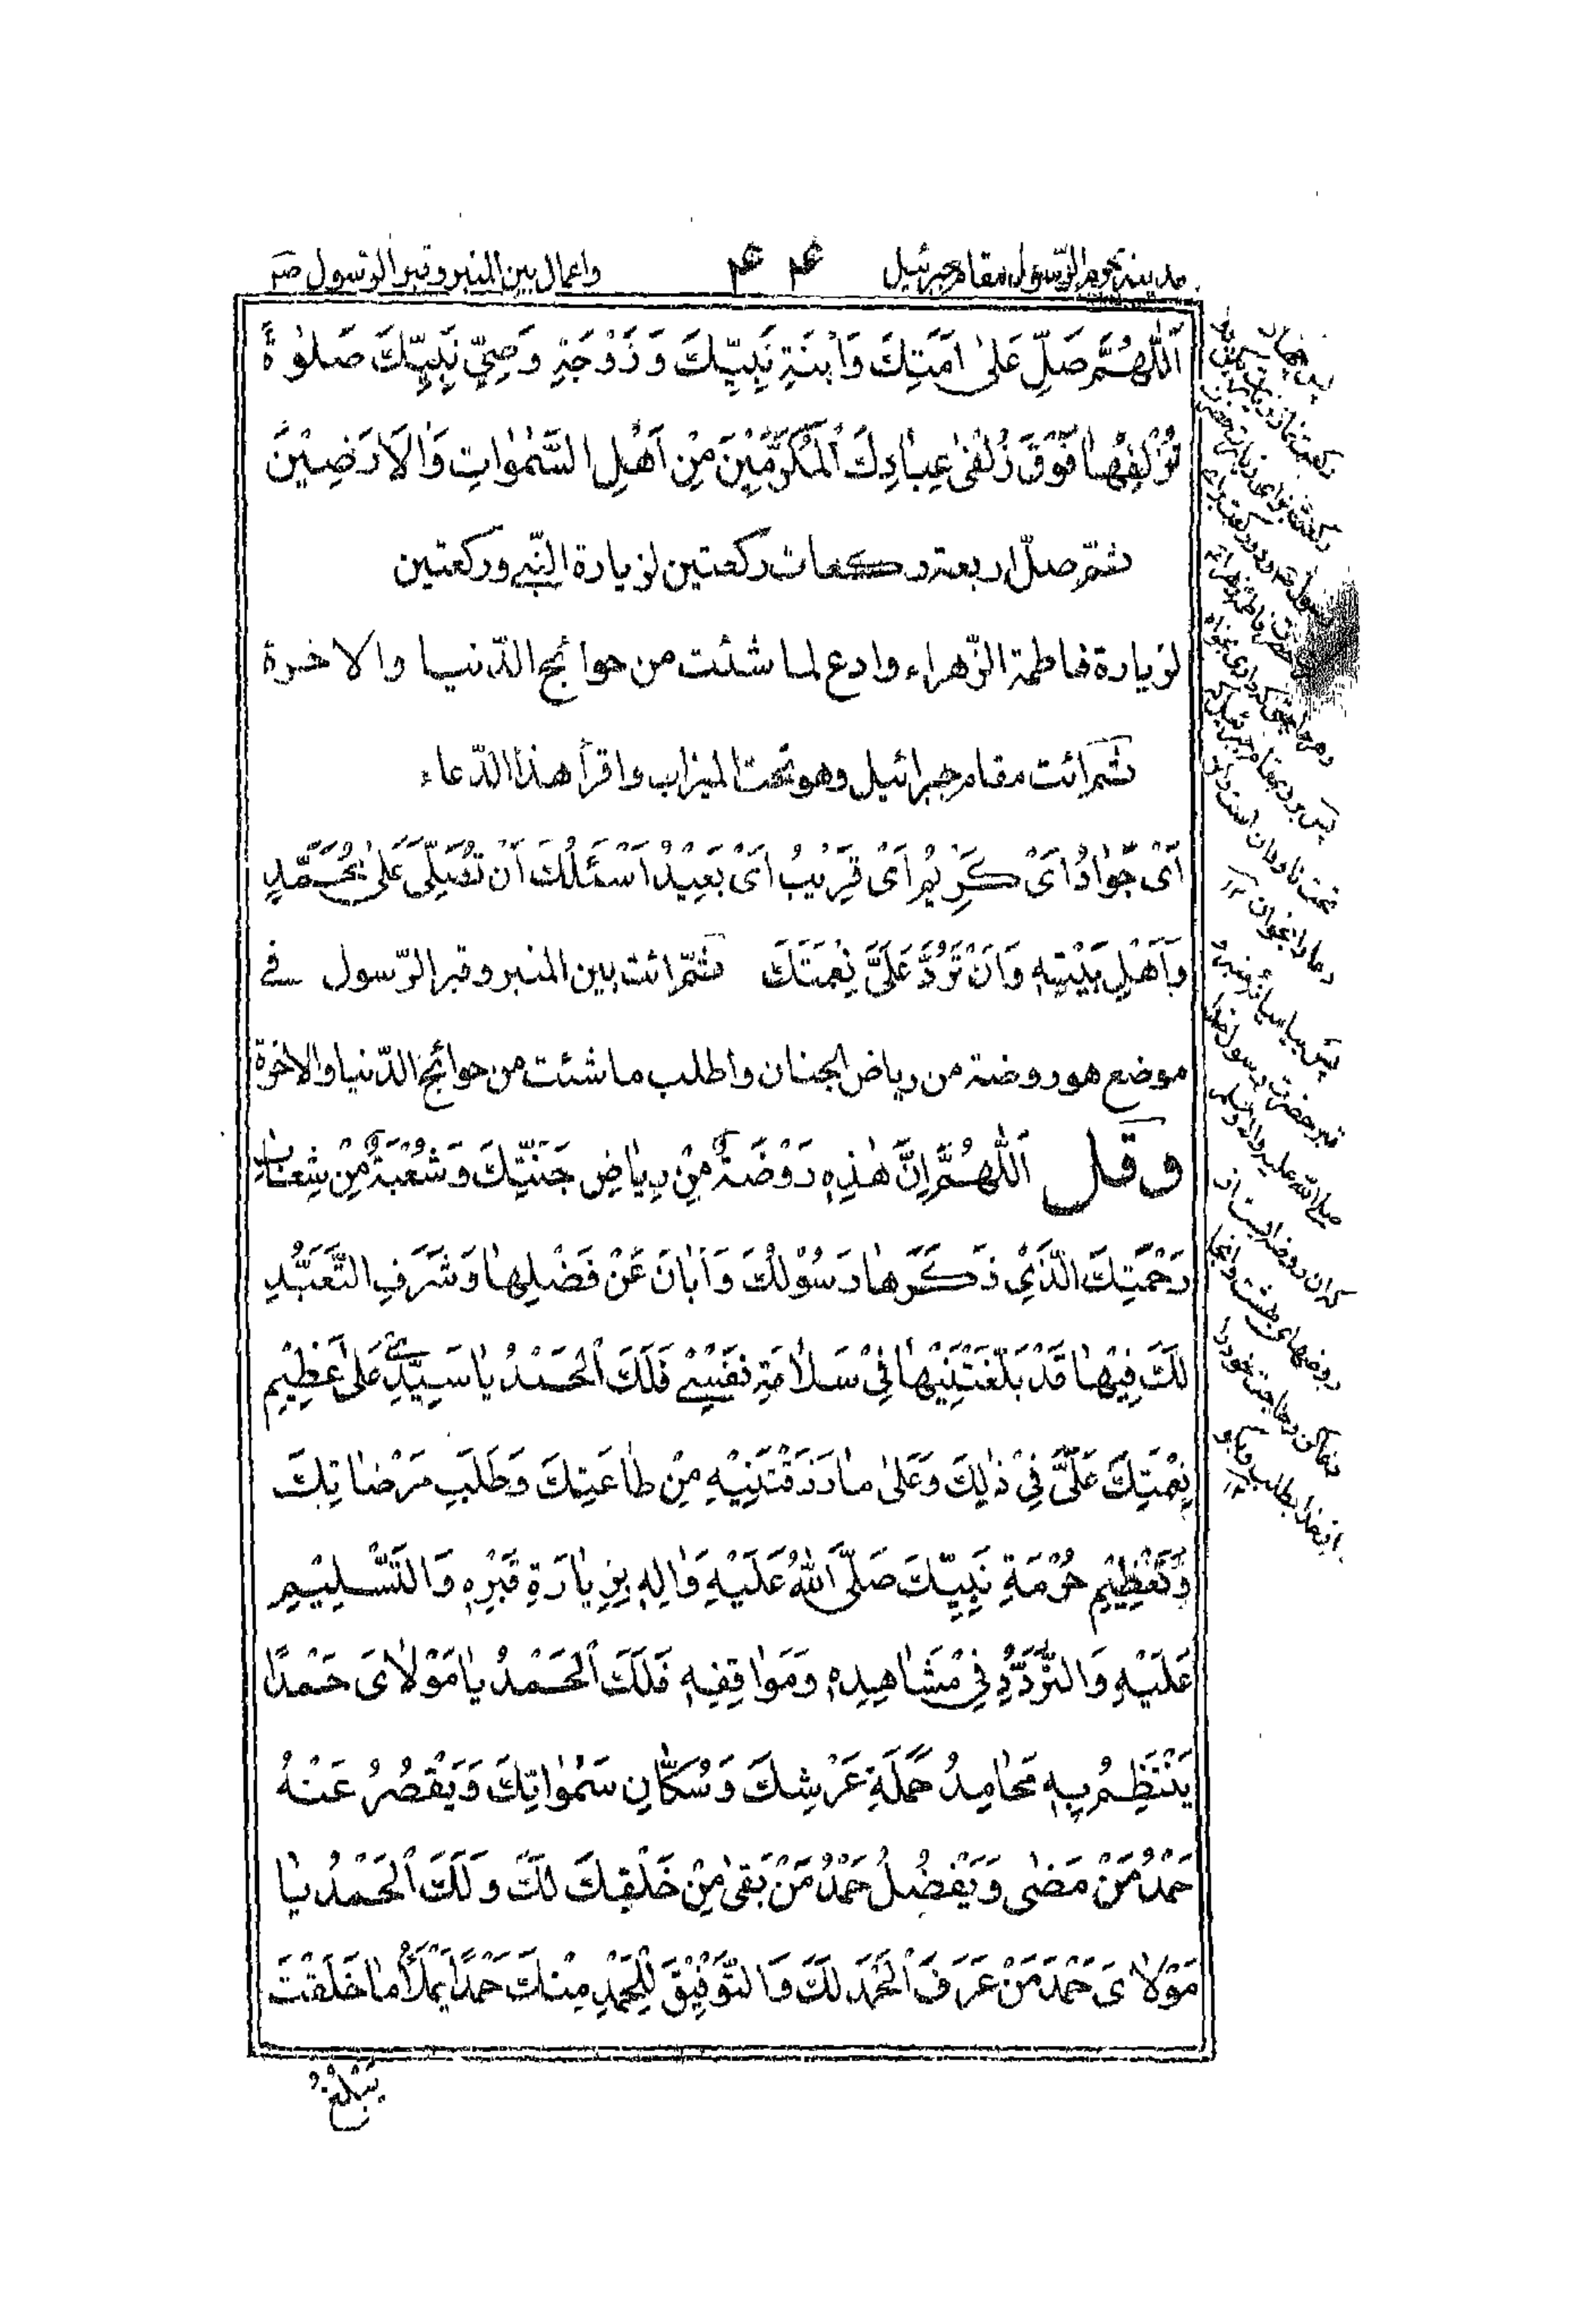 مدینة حرم الرّسول مقام جبرئیل
۴۴
واعمال بین المنبر وقبر الرّسول ص
اَللّٰهُمَّ صَلِّ عَلىٰ اَمَتِكَ وَابْنَةِ نَبِيِّكَ وَزَوْجَةِ وَصِيِّ نَبِيِّكَ صَلوٰةً
تُزْلِفُهٰا فَوْقَ زُلْفىٰ عِبٰادِكَ الْمُكَرَّمِيْنَ مِنْ اَهْلِ السَّمٰوٰاتِ وَالْاَرَضِيْنَ
ثمّ صلّ اربعة ركعات ركعتين لزيارة النّبي وركعتين
لزيارة فاطمة الزّهراء وادع لما شئت من حوائج الدّنيا والاخرة
ثم ائت مقام جبرائيل وهو تحت الميزاب واقرأ هذا الدّعاء
اَىْ جَوٰادُ اَىْ كَرِيْمُ اَىْ قَرِيْبُ اَىْ بَعِيْدُ اَسْئَلُكَ اَنْ تُصَلِّىَ عَلىٰ مُحَمَّدٍ
وَاَهْلِ بَيْتِهٖ وَاَنْ تَرُدَّ عَلَىَّ نِعْمَتَكَ ثمّ ائت بين المنبر وقبر الرّسول في
موضع هو روضة من رياض الجنان واطلب ما شئت من حوائج الدّنيا والاخرة
وقل اَللّٰهُمَّ اِنَّ هٰذِهٖ رَوْضَةٌ مِنْ رِيٰاضِ جَنَّتِكَ وَشُعْبَةٌ مِنْ شِعٰابِ
رَحْمَتِكَ الَّذَيْ ذَكَرَهٰا رَسُوْلُكَ وَاَبٰانَ عَنْ فَضْلِهٰا وَشَرَفِ التَّعَبُّدِ
لَكَ فِيْهٰا قَدْ بَلَّغْتَنِيْهٰا فِيْ سَلاٰمَةِ نَفْسِيْ فَلَكَ الْحَمْدُ يٰا سَيِّدِيْ عَلىٰ عَظِيْمِ
نِعْمَتِكَ عَلَىَّ فِيْ ذٰلِكَ وَعَلىٰ مٰا رَزَقْتَنِيْهِ مِنْ طٰاعَتِكَ وَطَلَبِ مَرْضٰاتِكَ
وَتَعْظِيْمِ حُرْمَةِ نَبِيِّكَ صَلَّى اللّٰهُ عَلَيْهِ وَاٰلِهٖ بِزِيٰارَةِ قَبْرِهٖ وَالتَّسْلِيْمِ
عَلَيْهِ وَالتَّرَدُّدِ فِيْ مَشٰاهِدِهٖ وَمَوٰاقِفِهٖ فَلَكَ الْحَمْدُ يٰا مَوْلاٰىَ حَمْدًا
يَنْتَظِمُ بِهٖ مَحٰامِدُ حَمَلَةِ عَرْشِكَ وَسُكّٰانِ سَمٰوٰاتِكَ وَيَقْصُرُ عَنْهُ
حَمْدُ مَنْ مَضىٰ وَيَفْضُلُ حَمْدُ مَنْ بَقىٰ مِنْ خَلْقِكَ لَكَ وَلَكَ الْحَمْدُ يٰا
مَوْلاٰىَ حَمْدَ مَنْ عَرَفَ الْحَمْدَ لَكَ وَالتَّوْفِيْقَ لِلْحَمْدِ مِنْكَ حَمْدًا يَمْلَأُ مٰا خَلَقْتَ
يَبْلُغُ
پس برو بمقام جبرئیل که
تحت ناودان است
دعا را بخوان
قبر حضرت رسول خدا
صلى الله عليه واله وسلم
که ان روضه ایست از
روضهای بهشت و انجا